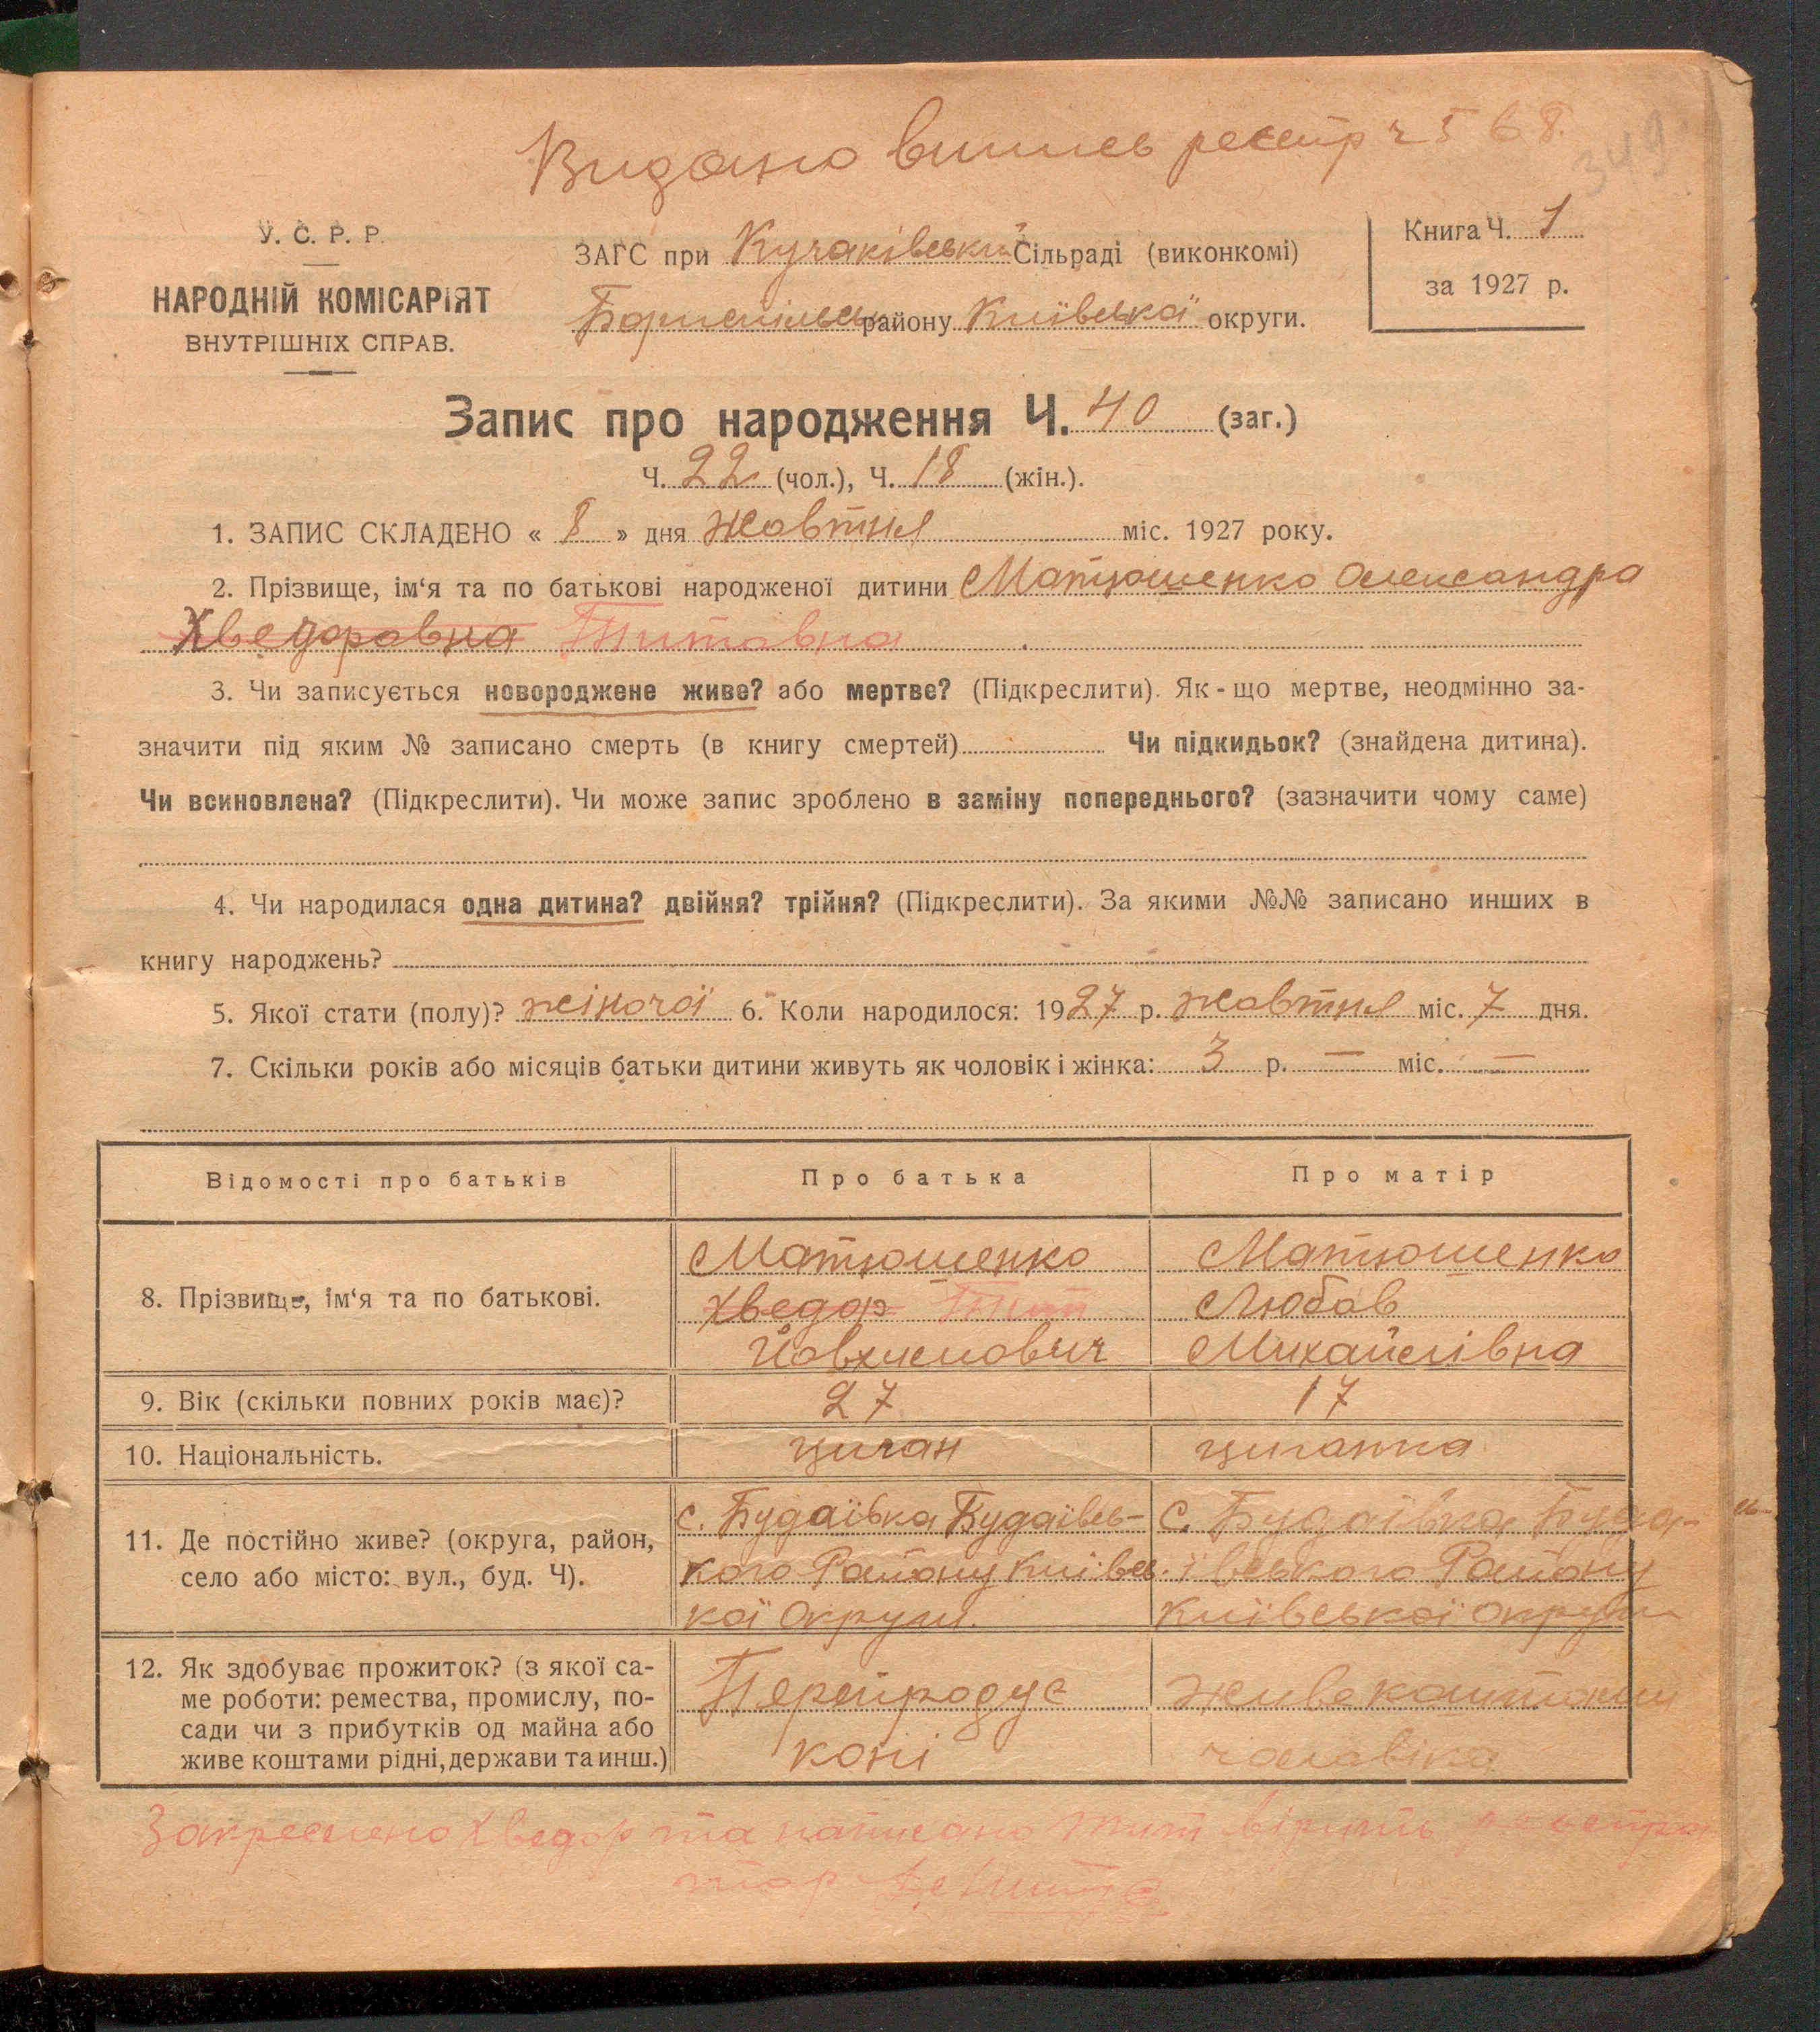 Видано випись реєстр ч 568.
349
У. С. Р. Р.
НАРОДНІЙ КОМІСАРІЯТ
ВНУТРІШНІХ СПРАВ.
ЗАГС при Кучаківській Сільраді (виконкомі)
Бориспільськ району Київської округи.
Книга Ч. 1
за 1927 р.
Запис про народження Ч. 40 (заг.)
Ч. 22 (чол.), Ч. 18 (жін.).
1. ЗАПИС СКЛАДЕНО « 8 » дня жовтня міс. 1927 року.
2. Прізвище, ім‘я та по батькові народженої дитини Матюшенко Олександра
Хведоровна Титовна
3. Чи записується новороджене живе? або мертве? (Підкреслити). Як-що мертве, неодмінно за-
значити під яким № записано смерть (в книгу смертей) Чи підкидьок? (знайдена дитина).
Чи всиновлена? (Підкреслити). Чи може запис зроблено в заміну попереднього? (зазначити чому саме)
4. Чи народилася одна дитина? двійня? трійня? (Підкреслити). За якими №№ записано инших в
книгу народжень?
5. Якої стати (полу)? жіночої 6. Коли народилося: 1927 р. жовтня міс. 7 дня.
7. Скільки років або місяців батьки дитини живуть як чоловік і жінка: 3 р. — міс. —
Відомості про батьків Про батька Про матір
8. Прізвище, ім‘я та по батькові.
Матюшенко
Хведор Тит
Йовхимович
Матюшенко
Любов
Михайлівна
9. Вік (скільки повних років має)? 27 17
10. Національність. циган циганка
11. Де постійно живе? (округа, район,
село або місто: вул., буд. Ч).
с. Будаївка Будаївсь-
кого Району Київсь-
кої Округи.
с. Будаївка Буда-
ївського Району
Київської округи
12. Як здобуває прожиток? (з якої са-
ме роботи: ремества, промислу, по-
сади чи з прибутків од майна або
живе коштами рідні, держави та инш.)
Перепродує
коні
живе коштами
чоловіка
Закреслено Хведор та написано Тит вірить реєстра
тор